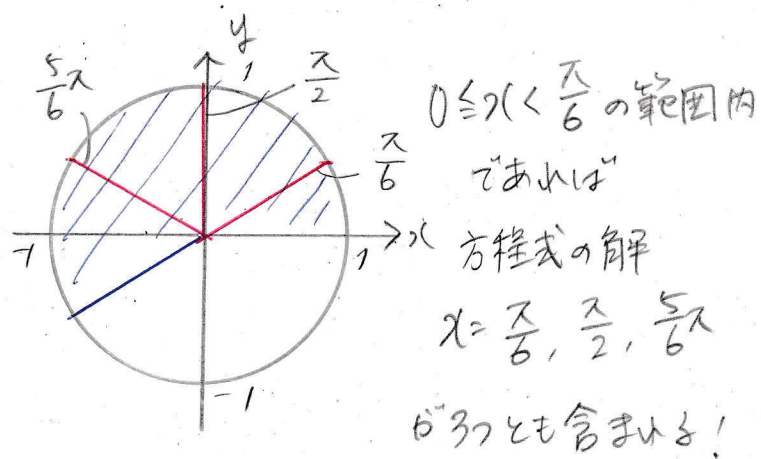 y
1
π/2
5/6π
π/6
-1
1
x
-1
0≦x<π/6の範囲内
であれば
方程式の解
x=π/6, π/2, 5/6π
が3つとも含まれる!